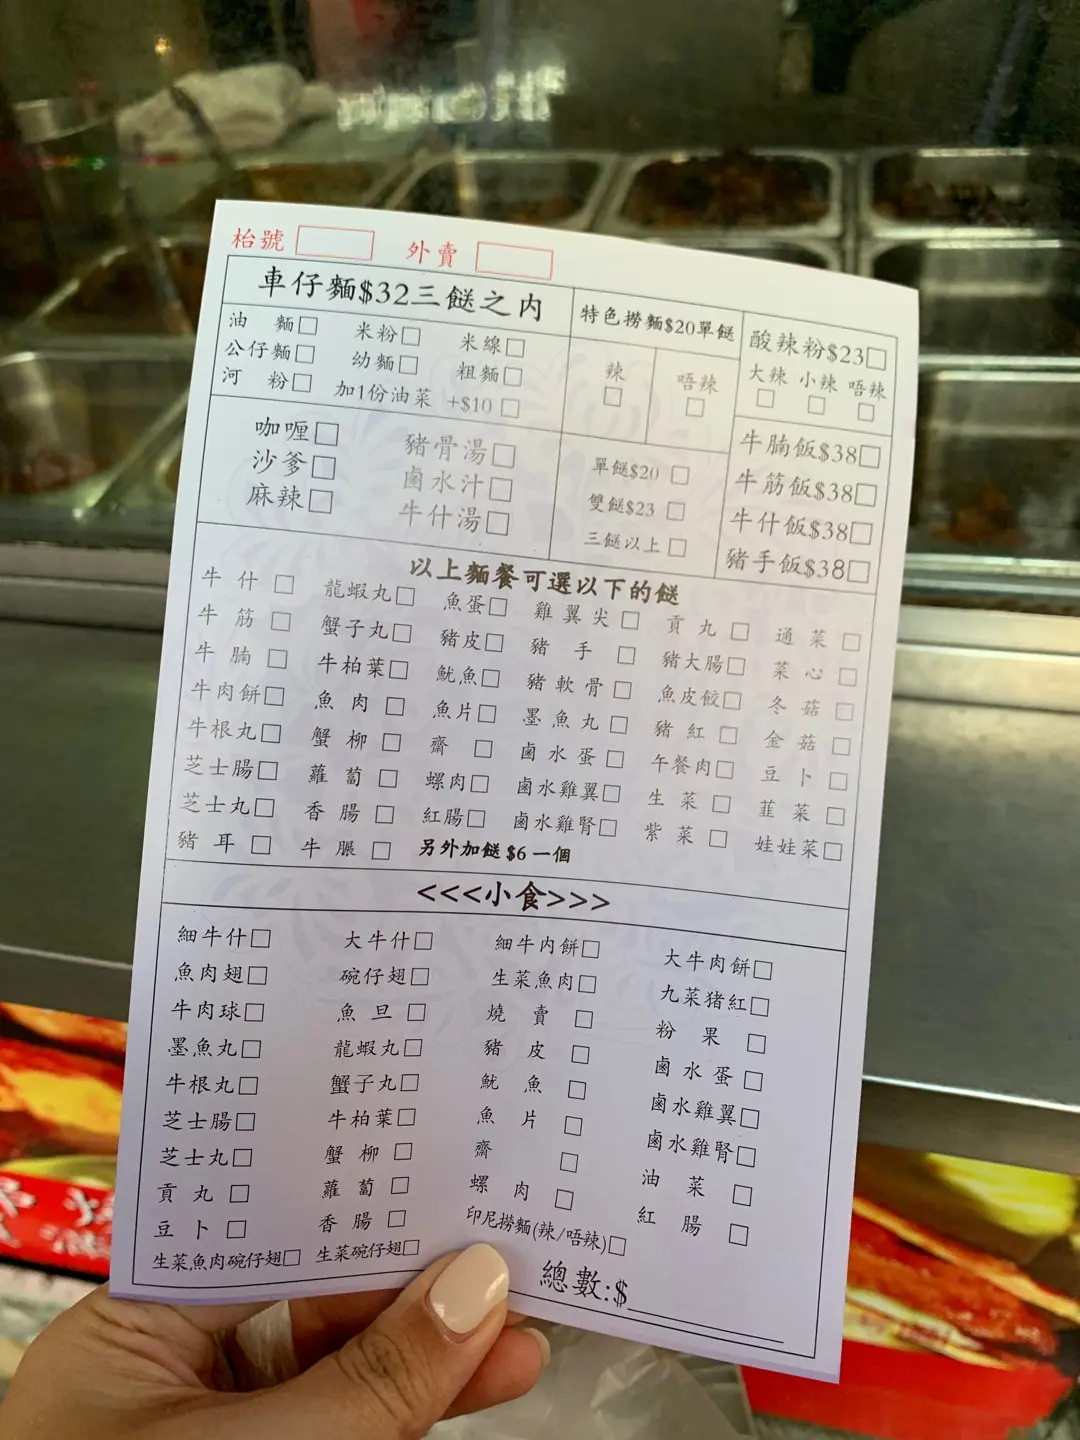 枱號 外賣
車仔麵$32三餸之內
油 麵□ 米粉□ 米線□
公仔麵□ 幼麵□ 粗麵□
河 粉□ 加1份油菜 +$10 □
特色撈麵$20單餸
辣 唔辣
□ □
酸辣粉$23□
大辣 小辣 唔辣
□ □ □
咖喱□ 豬骨湯□
沙爹□ 鹵水汁□
麻辣□ 牛什湯□
單餸$20 □
雙餸$23 □
三餸以上 □
牛腩飯$38□
牛筋飯$38□
牛什飯$38□
豬手飯$38□
以上麵餐可選以下的餸
牛 什 □ 龍蝦丸□ 魚蛋□ 雞翼尖□ 貢 丸 □ 通 菜 □
牛 筋 □ 蟹子丸□ 豬皮□ 豬 手 □ 豬大腸□ 菜 心 □
牛 腩 □ 牛柏葉□ 魷魚□ 豬軟骨□ 魚皮餃□ 冬 菇 □
牛肉餅□ 魚 肉 □ 魚片□ 墨魚丸□ 豬 紅 □ 金 菇 □
牛根丸□ 蟹 柳 □ 齋 □ 鹵水蛋□ 午餐肉□ 豆 卜 □
芝士腸□ 蘿 蔔 □ 螺肉□ 鹵水雞翼□ 生 菜 □ 韮 菜 □
芝士丸□ 香 腸 □ 紅腸□ 鹵水雞腎□ 紫 菜 □ 娃娃菜□
豬 耳 □ 牛 脤 □ 另外加餸$6一個
<<<小食>>>
細牛什□ 大牛什□ 細牛內餅□ 大牛肉餅□
魚肉翅□ 碗仔翅□ 生菜魚肉□ 九菜猪紅□
牛肉球□ 魚 旦 □ 燒 賣 □ 粉 果 □
墨魚丸□ 龍蝦丸□ 豬 皮 □ 鹵水蛋□
牛根丸□ 蟹子丸□ 魷 魚 □ 鹵水雞翼□
芝士腸□ 牛柏葉□ 魚 片 □ 鹵水雞腎□
芝士丸□ 蟹 柳 □ 齋 □ 油 菜 □
貢 丸 □ 蘿 蔔 □ 螺 肉 □ 紅 腸 □
豆 卜 □ 香 腸 □ 印尼撈麵(辣/唔辣)□
生菜魚肉碗仔翅□ 生菜碗仔翅□
總數:$